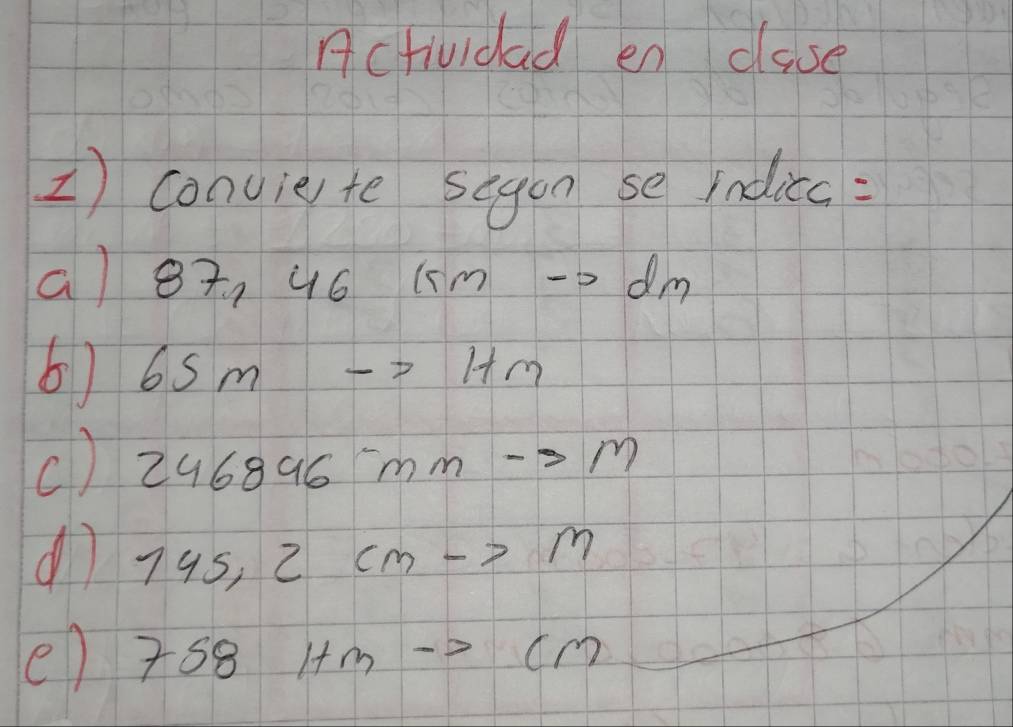 Actividad en clase
1) Convierte segun se indica:
a) 87, 46 Km -> dm
b) 65 m -> Hm
c) 246846 mm -> m
d) 145, 2 cm -> m
e) 758 Hm -> cm